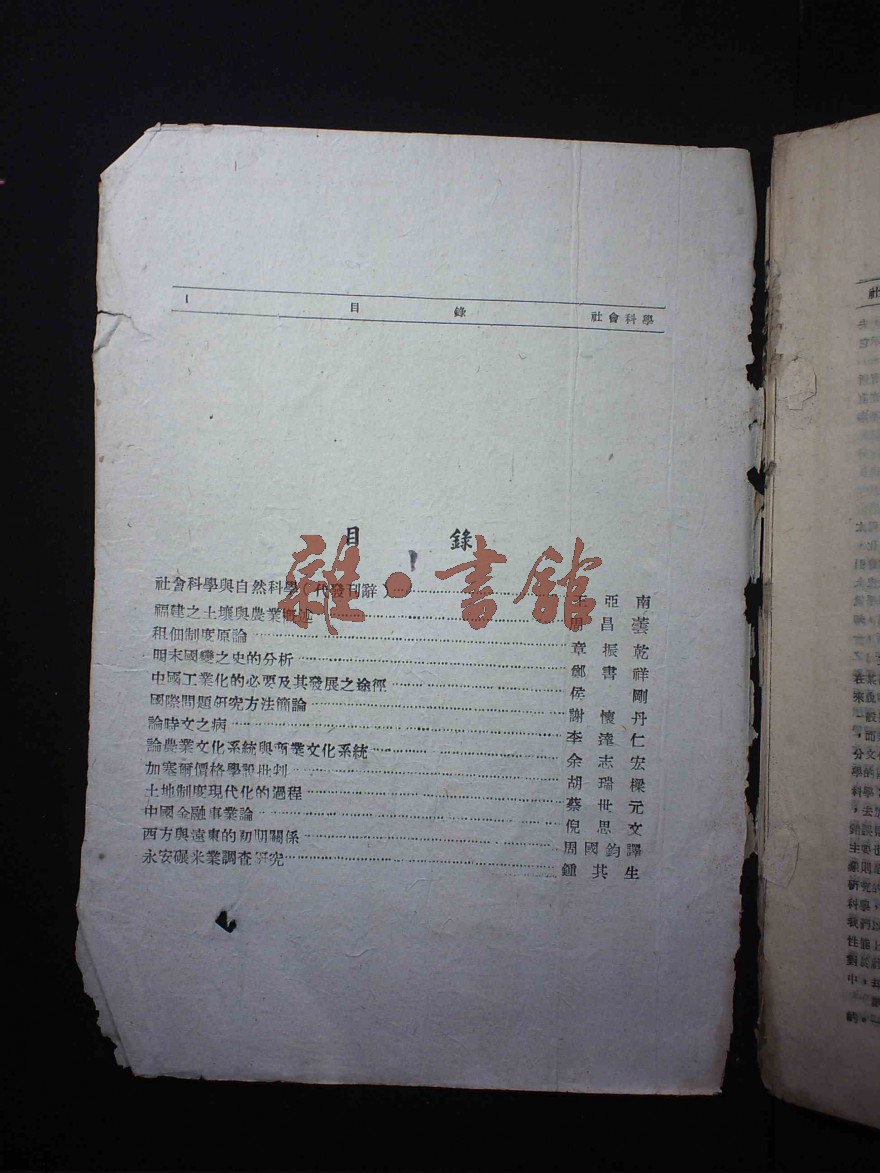 1 目 錄 社會科學
目 錄
社會科學與自然科學(代發刊辭) 王亞南
福建之土壤與農業概述 周昌蕓
租佃制度原論 章振乾
明末國變之史的分析 鄭書祥
中國工業化的必要及其發展之途徑 侯剛
國際問題研究方法簡論 謝懷丹
論時文之病 李達仁
論農業文化系統與商業文化系統 余志宏
加塞爾價格學說批判 胡瑞樑
土地制度現代化的過程 蔡世元
中國金融事業論 倪思文
西方與遠東的初期關係 周國鈞譯
永安碾米業調查研究 鍾其生
雜·書館